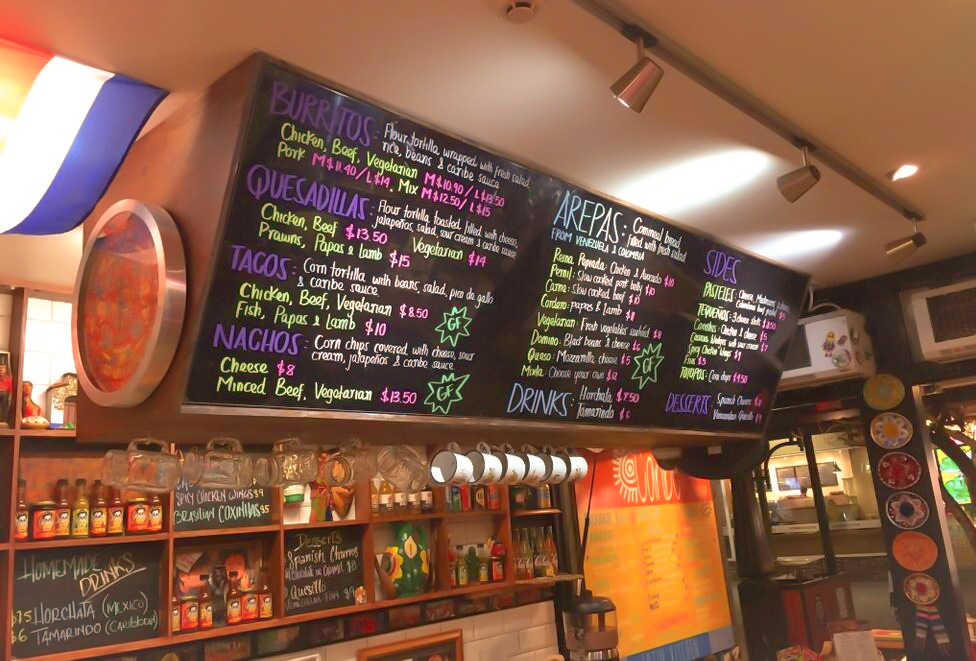 BURRITOS: Flour tortilla wrapped with fresh salad,
rice, beans & caribe sauce
Chicken, Beef, Vegetarian M $10.90 / L $13.50
Pork M $11.40 / L $14, Mix M $12.50 / L $15
QUESADILLAS: Flour tortilla toasted, filled with cheese,
jalapeños, salad, sour cream & caribe sauce
Chicken, Beef $13.50 Vegetarian $14
Prawns, Papas & Lamb $15
TACOS: Corn tortilla with beans, salad, pico de gallo
& caribe sauce
Chicken, Beef, Vegetarian $8.50
Fish, Papas & Lamb $10
GF
NACHOS: Corn chips covered with cheese, sour
cream, jalapeños & caribe sauce
Cheese $8
Minced Beef, Vegetarian $13.50
GF
AREPAS: Cornmeal bread,
filled with fresh salad
FROM VENEZUELA & COLOMBIA
Reina Pepiada: Chicken & Avocado $10
Pernil: Slow cooked pork belly $10
Carne: Slow cooked beef $10
Cordero: papas & Lamb
Vegetarian: Fresh vegetables
Domino: Black beans & cheese
Queso: Mozzarella cheese $5
Mixta: Choose your own $12
GF
DRINKS: Horchata $7.50
Tamarindo $6
SIDES
PASTELES: Cheese,
TEQUEÑOS: 3 cheese
Coxinhas: Chicken & Cheese
Spicy Chicken Wings
Fries
TOTOPOS: Corn chips $4.50
DESSERTS: Spanish Churros
Venezuelan Quesillo
SPICY CHICKEN WINGS $9
BRASILIAN COXINHAS $5
Desserts
Spanish Churros
Chocolate or Caramel $8
Quesillo
Venezuelan Flan $9
HOMEMADE
DRINKS
HORCHATA (MEXICO)
$6 TAMARINDO (CARIBBEAN)